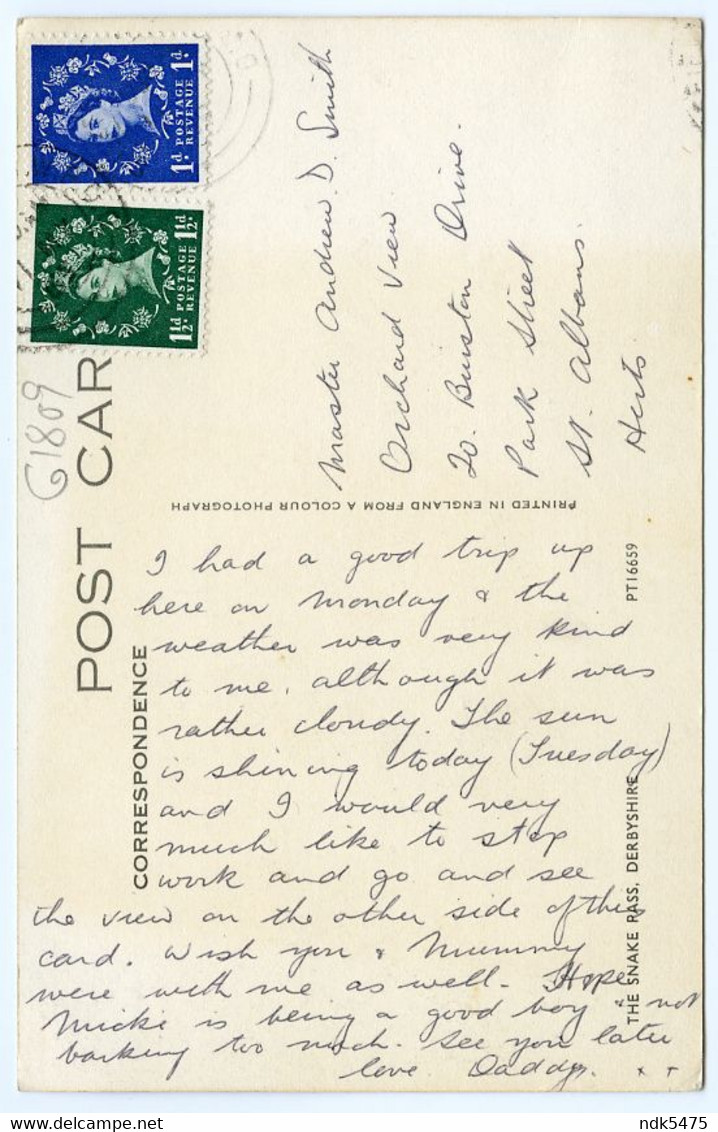 1d POSTAGE REVENUE 1d
1½d POSTAGE REVENUE 1½d
G1809
POST CAR
CORRESPONDENCE
PRINTED IN ENGLAND FROM A COLOUR PHOTOGRAPH
THE SNAKE PASS, DERBYSHIRE
PT16659
Master Andrew. D. Smith
Orchard View
20. Burston Drive.
Park Street
St. Albans.
Herts
I had a good trip up
here on Monday & the
weather was very kind
to me, although it was
rather cloudy. The sun
is shining today (Tuesday)
and I would very
much like to stop
work and go and see
the view on the other side of this
card. Wish you & Mummy
were with me as well. Hope
Micki is being a good boy & not
barking too much. See you later
love Daddy. x x
ndk5475